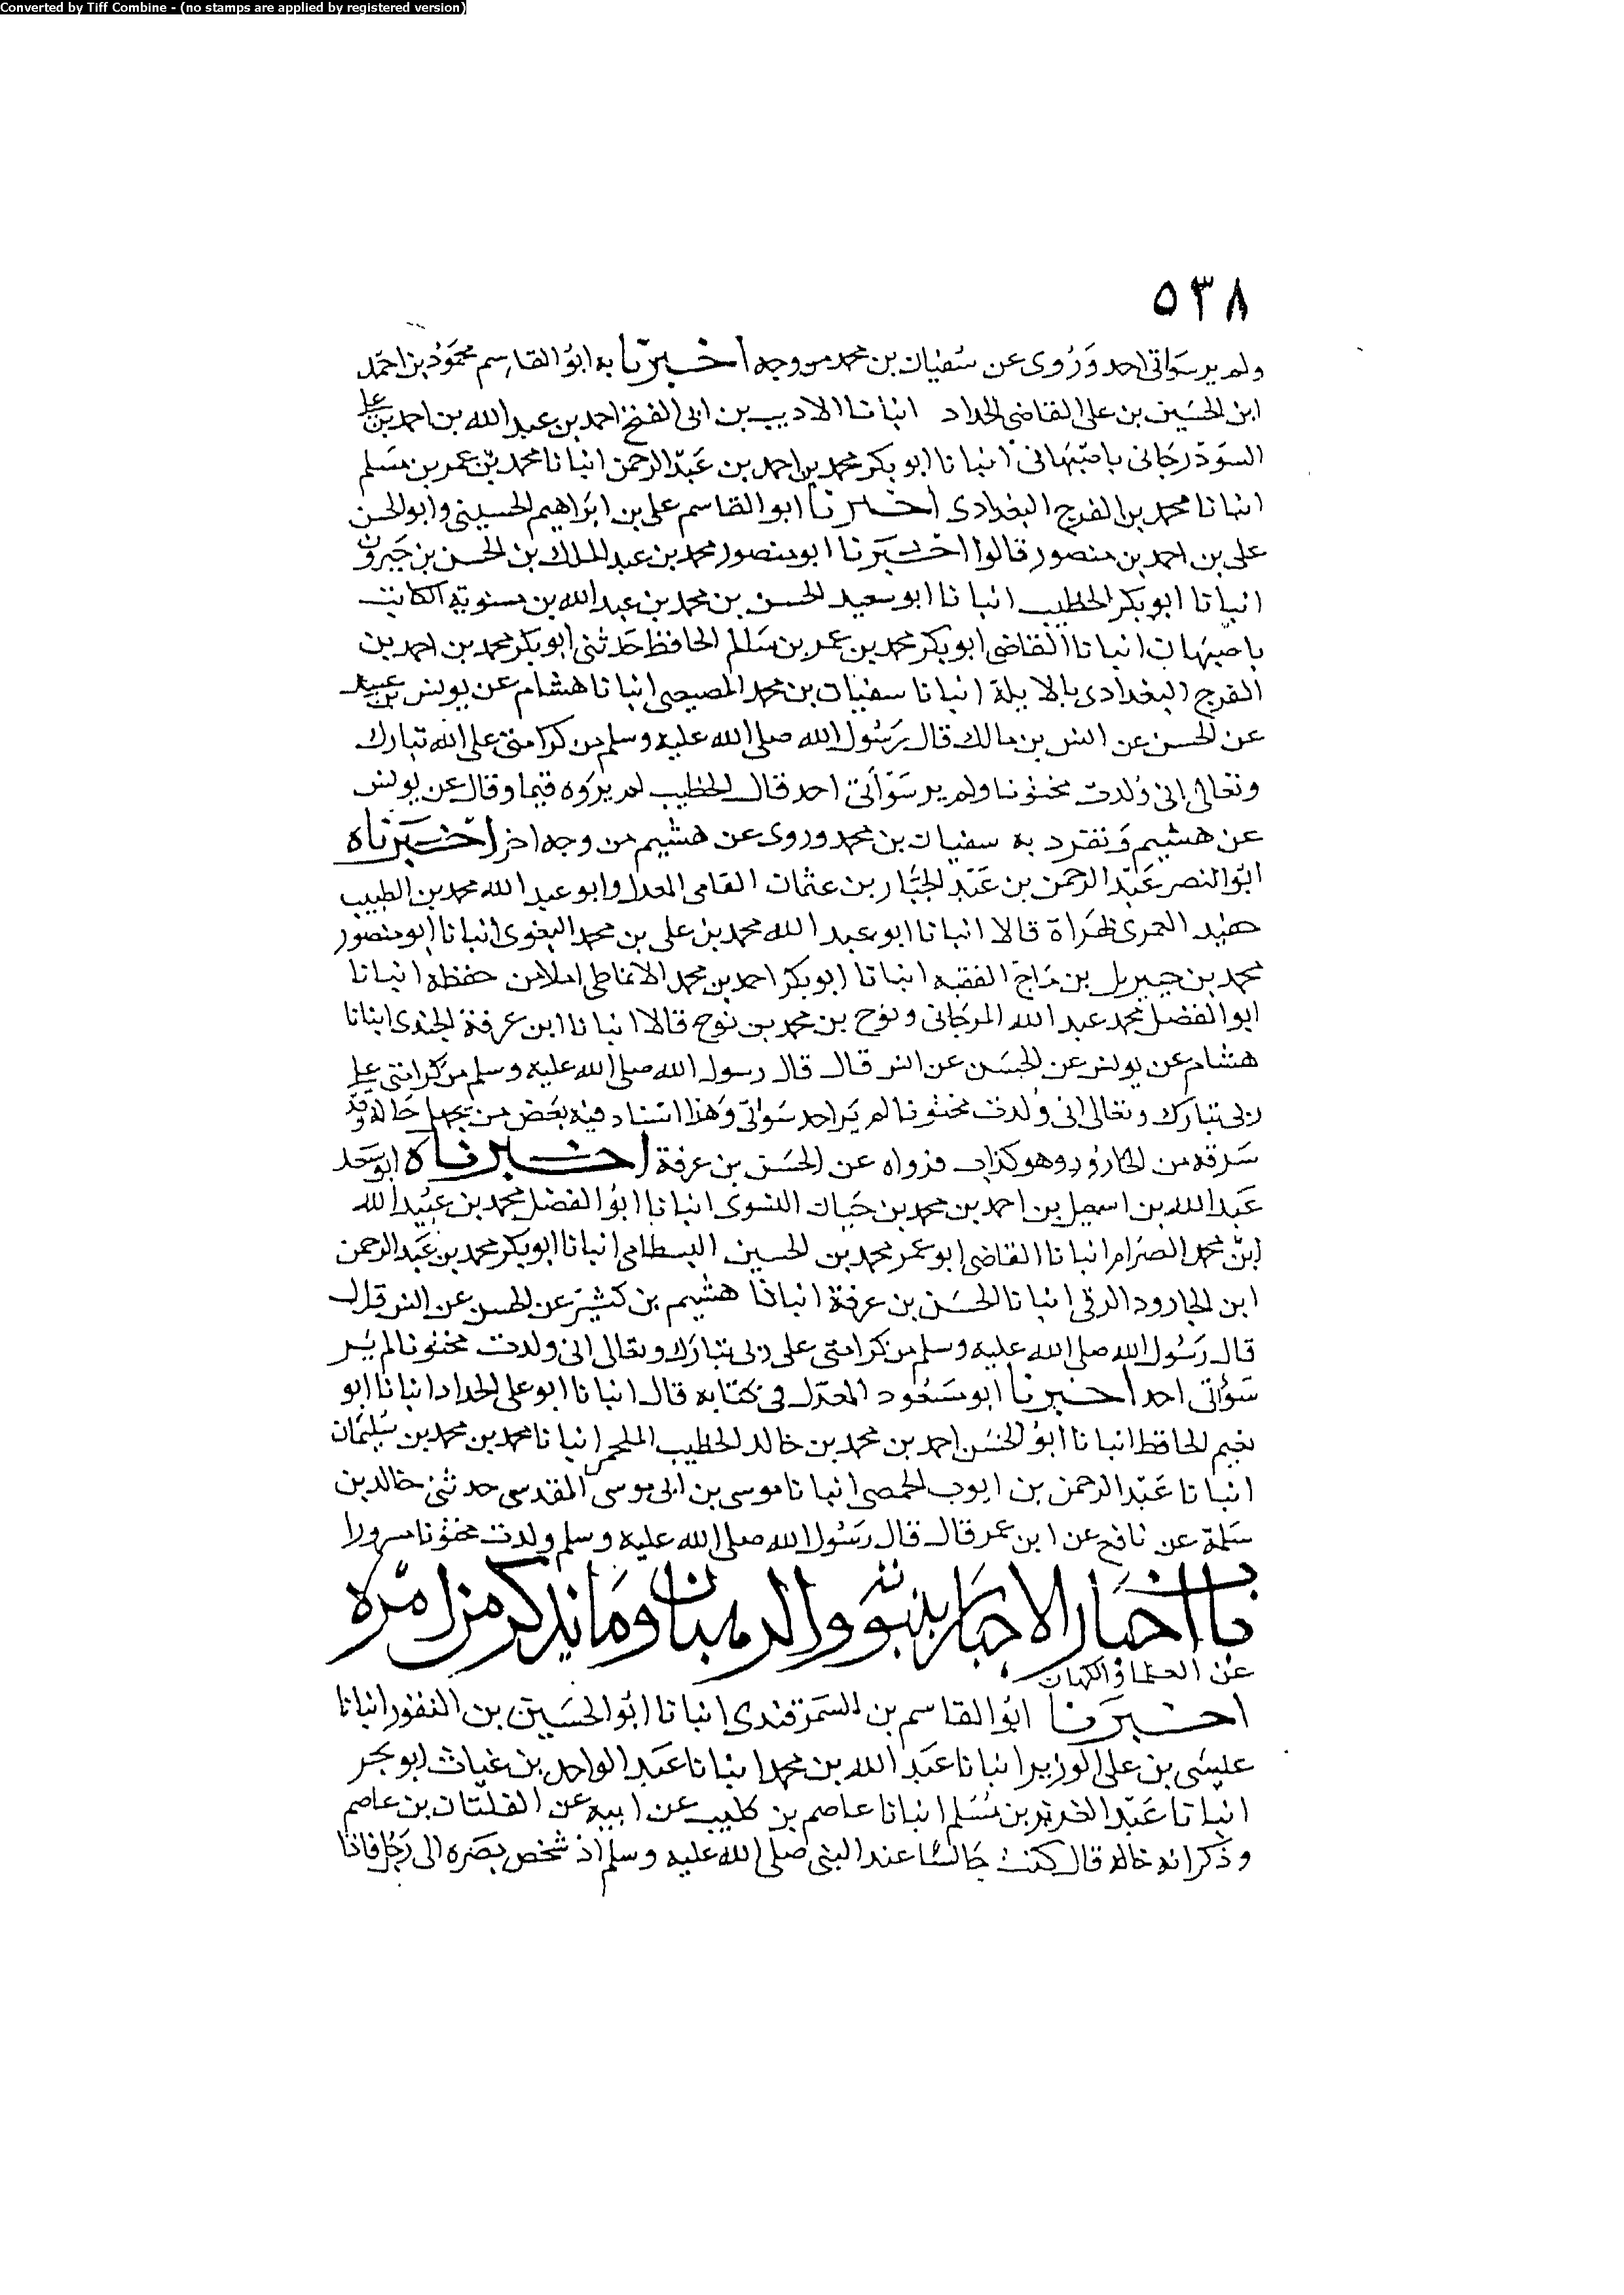 Converted by Tiff Combine - (no stamps are applied by registered version)
٥٣٨
ولم ير سَوأتي احد وَرُوى عن سُفيان بن محمد من وجه اخبرنا به ابوُ القاسم محموُد بن احمَد
ابن الحسَين بن على القاضى الحداد انبانا الاديب بن ابى الفتح احمد بن عبد الله بن احمد بن على
السوَذرجانى باصبَهانى انبانا ابو بكر محمد بن احمد بن عَبد الرحمن انبانا محمد بن عمر بن مسَلم
انبانا محمد بن الفرج البغدادى اخبرنا ابو القاسم على بن ابرَاهيم الحسينى وابو الحسن
على بن احمد بن منصور قالوا اخبَرنا ابو منصور محمد بن عبد الملك بن الحسن بن خَيرون
انبانا ابو بكر الخطيب انبانا ابو سعيد الحسن بن محمد بن عبد الله بن حسنوية الكاتب
باصبهان انبانا القاضى ابو بكر محمد بن عمر بن سَلم الحافظ حَدثنى ابو بكر محمد بن احمد بن
الفرج البغدادى بالابلة انبانا سفيان بن محمد المصيصى انبانا هشام عن يونس بن عبيد
عن الحسن عن انس بن مالك قال رَسُول الله صلى الله عليه وسلم من كرامتى على الله تبارك
وتعالى انى وُلدت مختونا ولم ير سَوأتى احد قال الخطيب لم يروَه فيما وقال عن يونس
عن هشيم وَتفرد به سفيان بن محمد وروى عن هشيم من وجه اخر اخبَرناه
ابوُ النصر عَبد الرحمن بن عَبد الجبَّار بن عثمان القامى المعدل وابو عبد الله محمد بن الطبيب
العمرى بهَراة قالا انبانا ابو عبد الله محمد بن على بن محمد البغوى انبانا ابو منصور
محمد بن جبريل بن مَاج الفقيه انبانا ابو بكر احمد بن محمد الانماطى املا من حفظه انبانا
ابو الفضل محمد عبد الله المرجَانى ونوح بن محمد بن نوُح قالا انبانا ابن عرفة الجندى انبانا
هشام عن يونس عن الحسَن عن انس قال قال رسول الله صلى الله عليه وسلم من كرامتى على
ربى تبارك وتعالى انى وُلدت مختونا لم يَر احد سَوأتى وَهذا اسناد فيه بعَض من يجهل حَاله وَقد
سَرقه من الجارُود وهو كذاب فرواه عن الحسَن بن عرفة اخبرناه ابو سَعد
عَبد الله بن اسمعيل بن احمد بن محمد بن حَيان النسوى انبانا ابوُ الفضل محمد بن عبُيد الله
ابن محمد الصرَام انبانا القاضى ابو عمر محمد بن الحسين البسطامى انبانا ابو بكر محمد بن عَبد الرحمن
ابن الجارود الرقى انبانا الحسَن بن عرفة انبانا هشيم بن كثير عن الحسن عن انس قال
قال رَسُول الله صلى الله عليه وسلم من كرامتى على ربى تبارَك وتعالى انى ولدت مختونا لم يُر
سَوأتى احد اخبرنا ابو مسَعُود المعدل فى كتابه قال انبانا ابو على الحداد انبانا ابو
نعيم الحافظ انبانا ابوُ الحسَن احمد بن محمد بن خالد الخطيب الملحمى انبانا محمد بن محمد بن سُليمَان
انبانا عَبد الرحمن بن ايوب الحمصى انبانا موسى بن ابى موسى المقدسى حدثنى خالد بن
سَلمة عن نافع عن ابن عمر قال قال رَسُول الله صلى الله عليه وسلم ولدت مختوُنا مسرورا
باب اخبار الاحبَار بنبوته والرهبان وما يذكر من امره
عن العلماء والكهان
اخبرَنا ابوُ القاسم بن السَمرَقندى انبانا ابوُ الحسَين بن النقور انبانا
عيسَى بن على الوزير انبانا عبَد الله بن محمد انبانا عبَد الواحد بن غياث ابو بحر
انبانا عَبد العزيز بن مُسَلم انبانا عاصم بن كليب عن ابيه عن الفلتان بن عاصم
وذكر انه خاله قال كنت جَالسًا عند النبى صلى الله عليه وسلم اذ شخص بصَره الى رَجُل فاذا